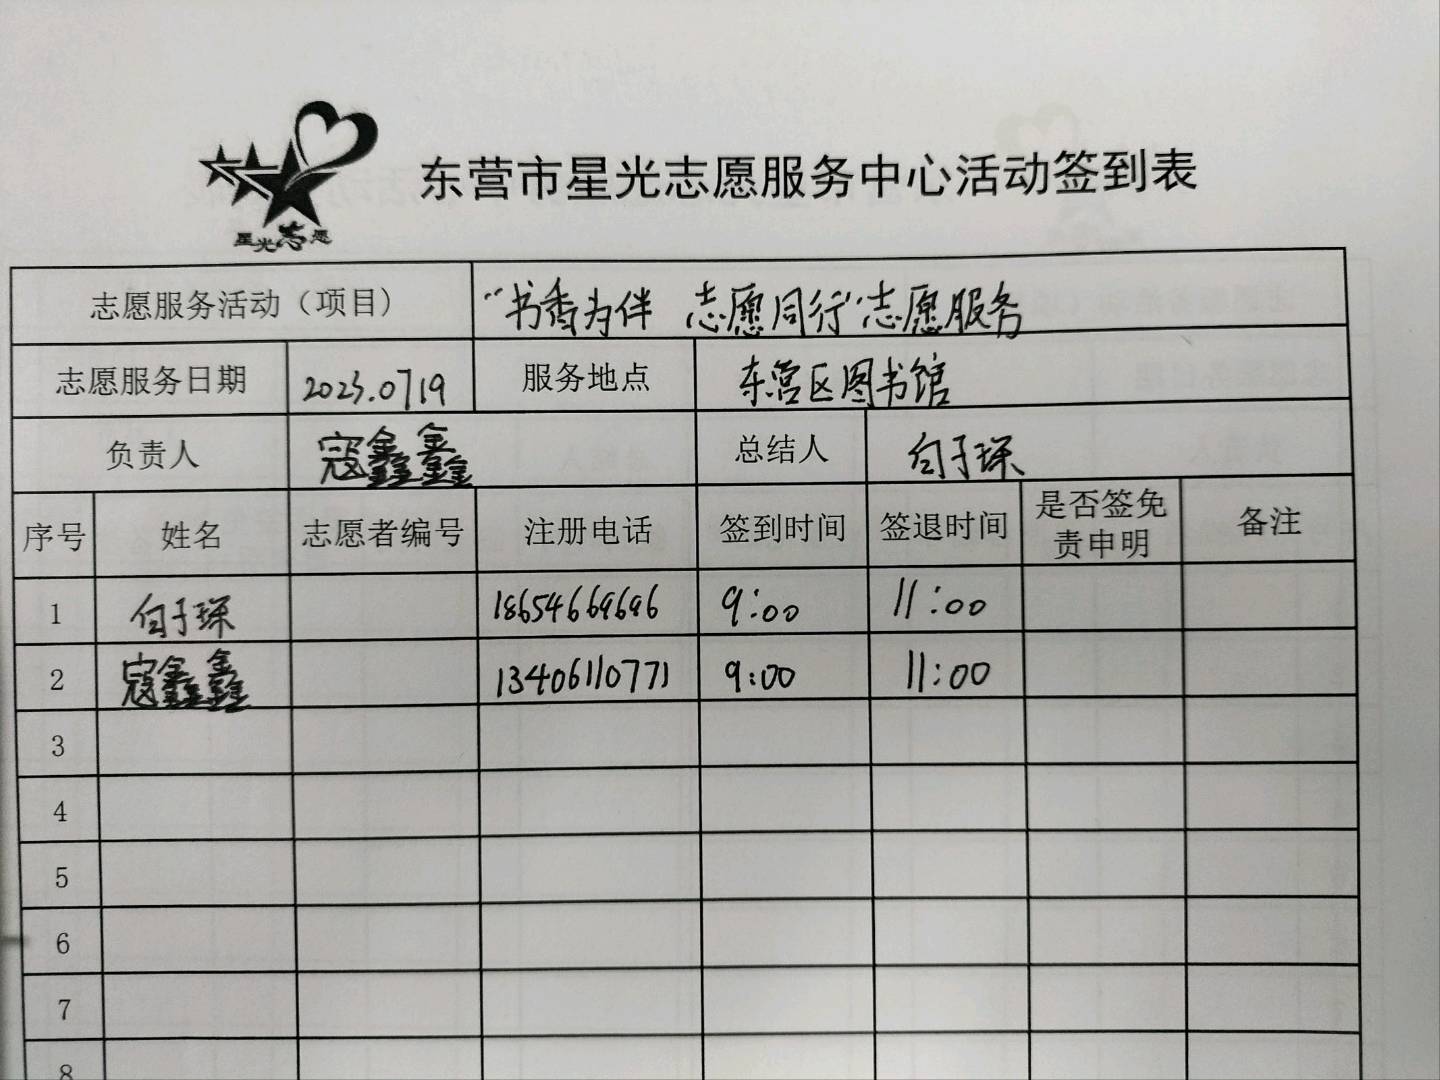 星光志愿
东营市星光志愿服务中心活动签到表
志愿服务活动（项目） “书香为伴 志愿同行”志愿服务
志愿服务日期 2023.0719 服务地点 东营区图书馆
负责人 寇鑫鑫 总结人 白子琛
序号 姓名 志愿者编号 注册电话 签到时间 签退时间 是否签免 备注
责申明
1 白子琛 18654669696 9:00 11:00
2 寇鑫鑫 13406110771 9:00 11:00
3
4
5
6
7
8